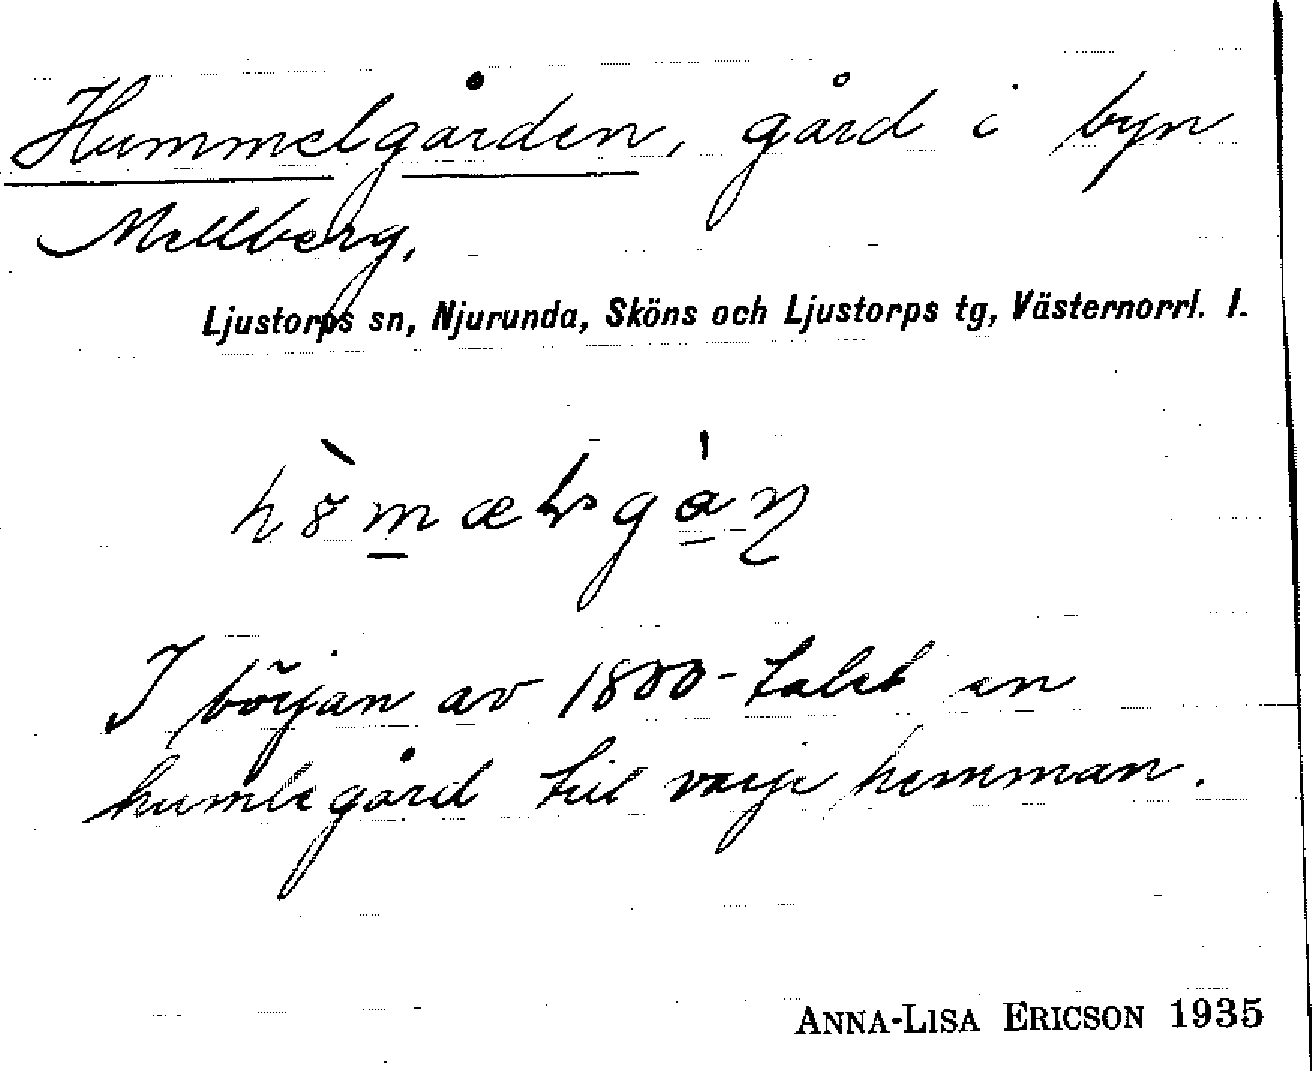 Hummelgården, gård i byn
Mellberg,
Ljustorps sn, Njurunda, Sköns och Ljustorps tg, Västernorrl. l.
I början av 1800-talet en
humlegård till varje hemman.
ANNA-LISA ERICSON 1935